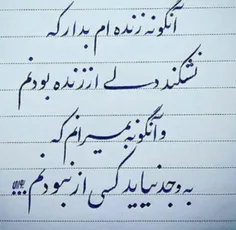 آنگونه زنده ام بدار که
نشکند دلے از زنده بودنم
و آنگونه بمیرانم که
به وجد نیاید کسی از نبودنم